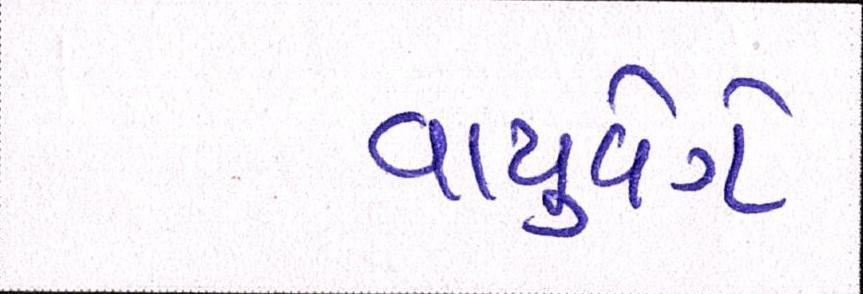 વાયુવેગે